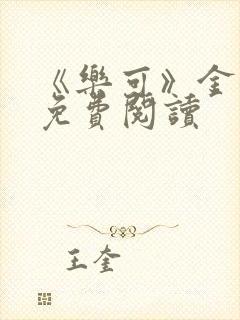 《樂可》全
免費閱讀
王奎